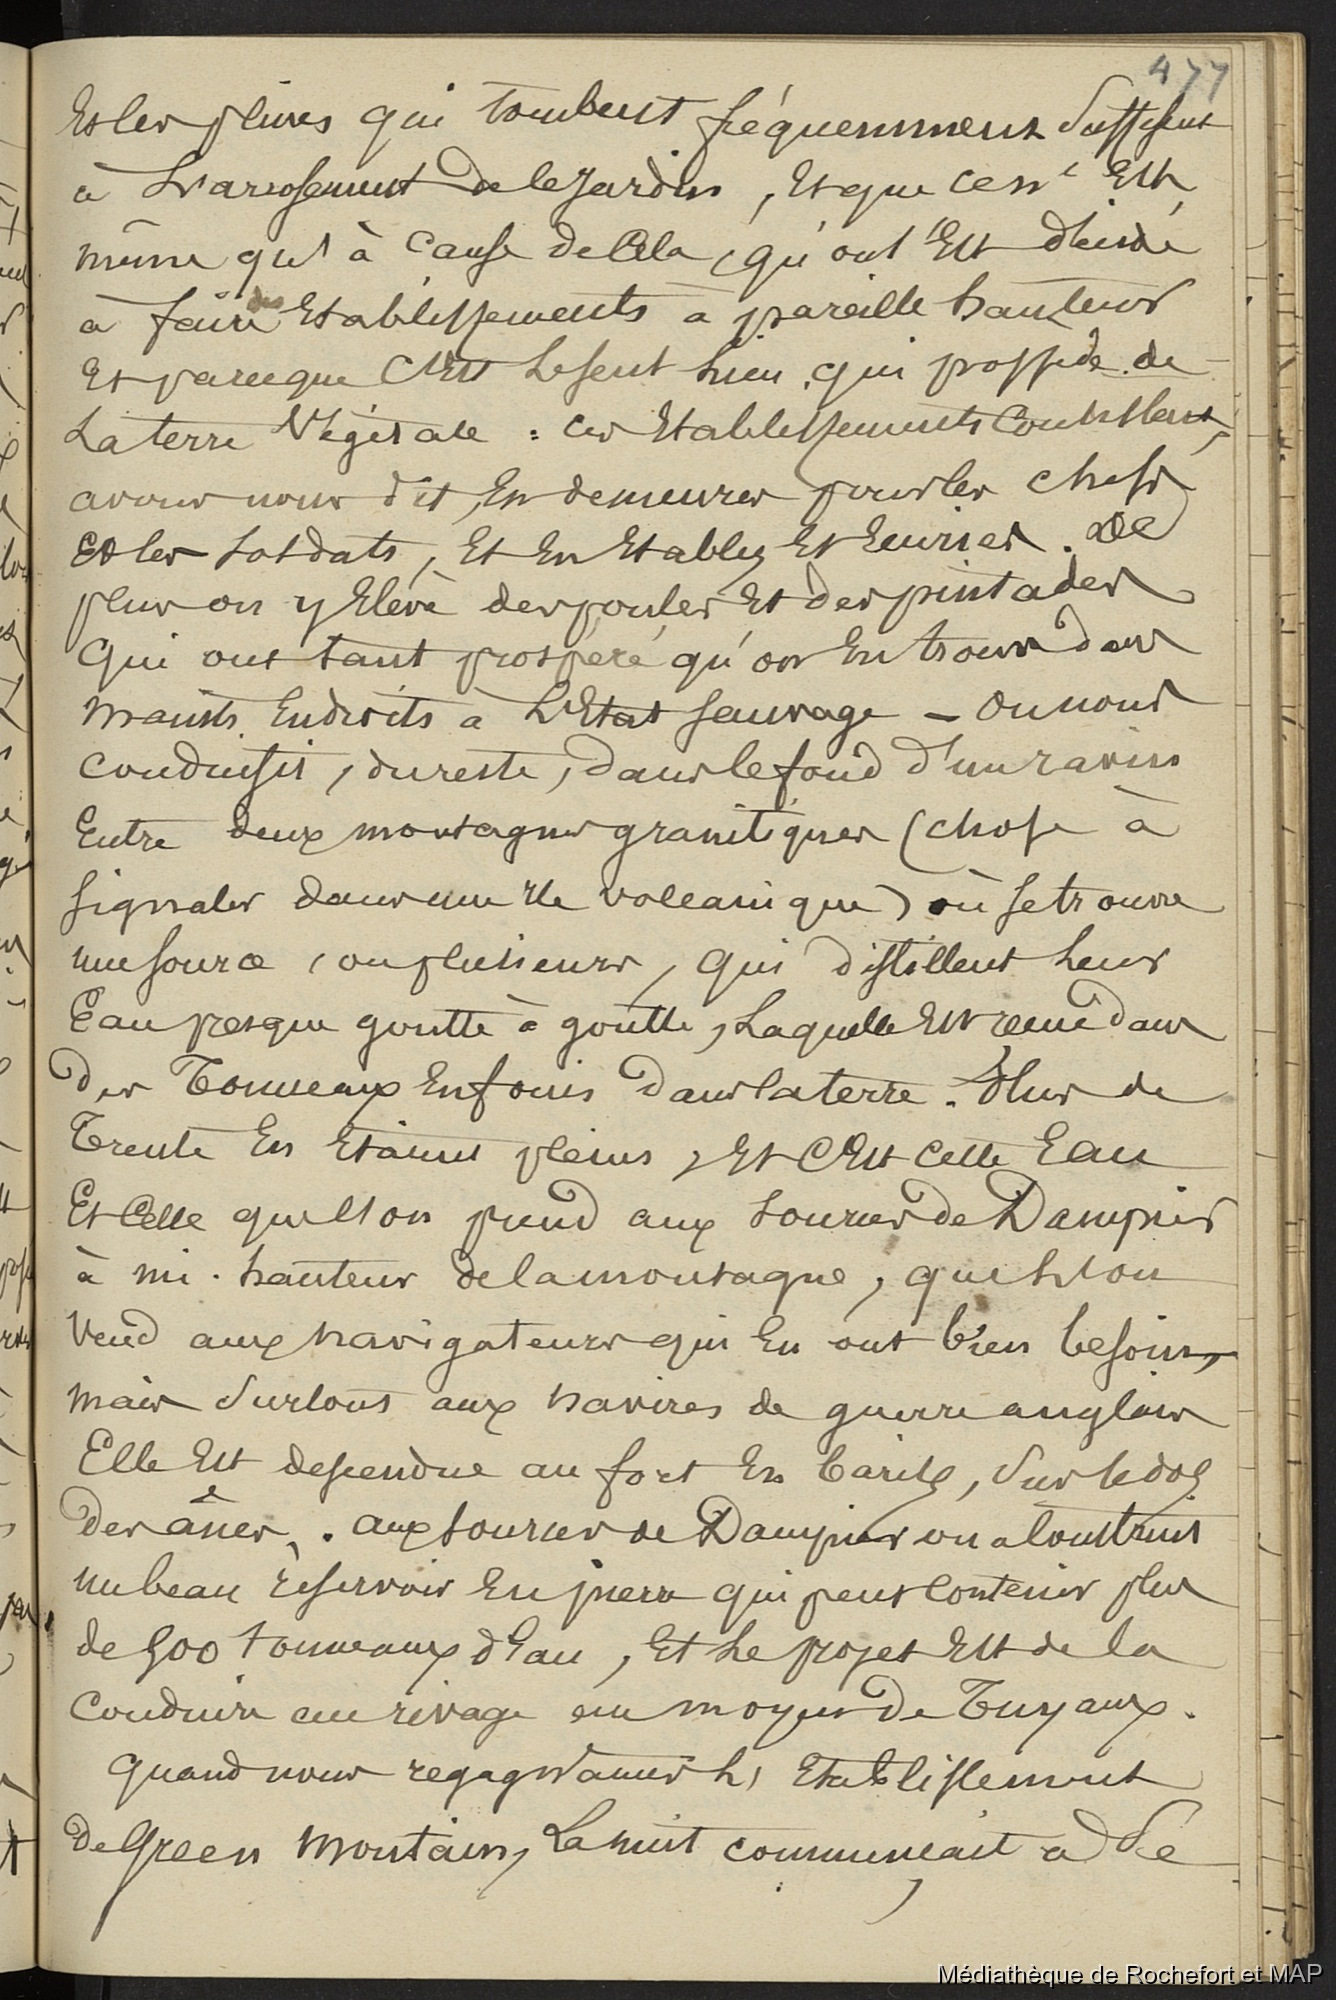 477
Et les pluies qui tombent fréquemment suffisent
à l'arrosement de le jardin, Et que ce n'Est
même qu'à cause de Cela, qu'on s'Est décidé
à faire des Etablissements à pareille hauteur
Et parceque C'Est le seul lieu qui possède de
la terre Végétale : ces Etablissements Consistent,
avons nous dit, En demeures pour les chefs
Et les soldats, Et En Etables Et Ecuries. De
plus on y Elève des poules Et des pintades
qui ont tant prospéré qu'on En trouve dans
maints Endroits à L'Etat sauvage – On nous
conduisit, du reste, dans le fond d'un ravin
Entre deux montagnes granitiques (chose à
signaler dans une île volcanique) où se trouve
une source, ou plusieurs, qui distillent leur
Eau presque goutte à goutte, Laquelle Est reçue dans
des Tonneaux Enfouis dans la terre. Plus de
Trente En Etaient pleins, Et C'Est cette Eau
Et Celle que l'on prend aux sources de Dampier
à mi-hauteur de la montagne, que l'on
vend aux navigateurs qui En ont bien besoin,
mais surtout aux navires de guerre anglais
Elle Est descendue au fort En barils, sur le dos
des ânes. aux sources de Dampier on a Construit
un beau réservoir En pierre qui peut Contenir plus
de 500 tonneaux d'Eau, Et Le projet Est de la
conduire au rivage au moyen de Tuyaux.
Quand nous regagnames L'Etablissement
de Green Montain, La nuit commençait à Se
Médiathèque de Rochefort et MAP